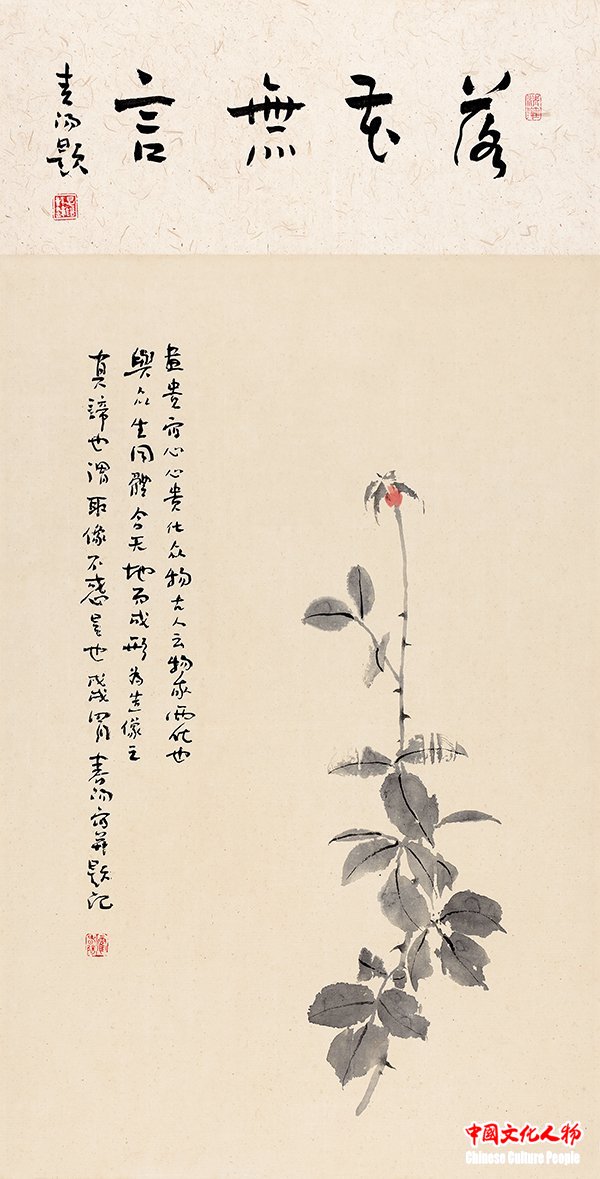 落花無言
題
畫贵寫心心贵化众物古人云物我兩化也
與众生同體合天地而成形为造像之
真諦也謂取像不惑是也戊戌寫并题记
中國文化人物
Chinese Culture People